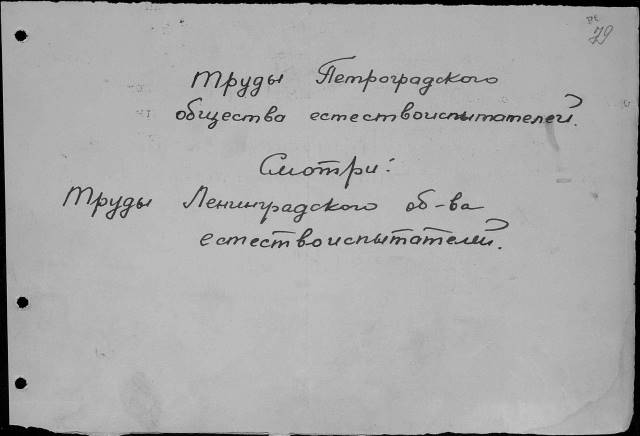 79
Труды Петроградского
общества естествоиспытателей.
Смотри:
Труды Ленинградского об-ва
естествоиспытателей.